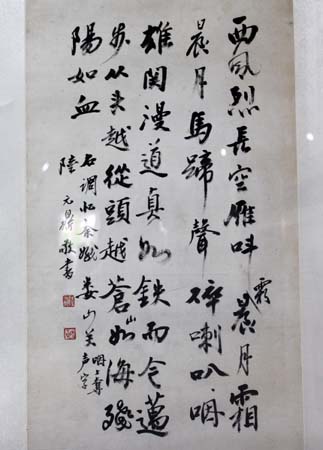 西風烈長空雁叫霜晨月霜
晨月馬蹄聲碎喇叭咽
雄関漫道真如鐵而今邁
步从头越從頭越蒼山如海殘
陽如血
右調忆秦娥 娄山关 咽上夺声字
陸元敬書